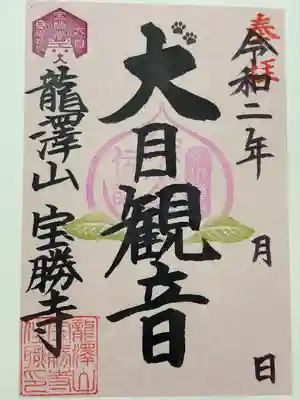 奉拝
令和二年 月 日
犬目観音
龍澤山 宝勝寺